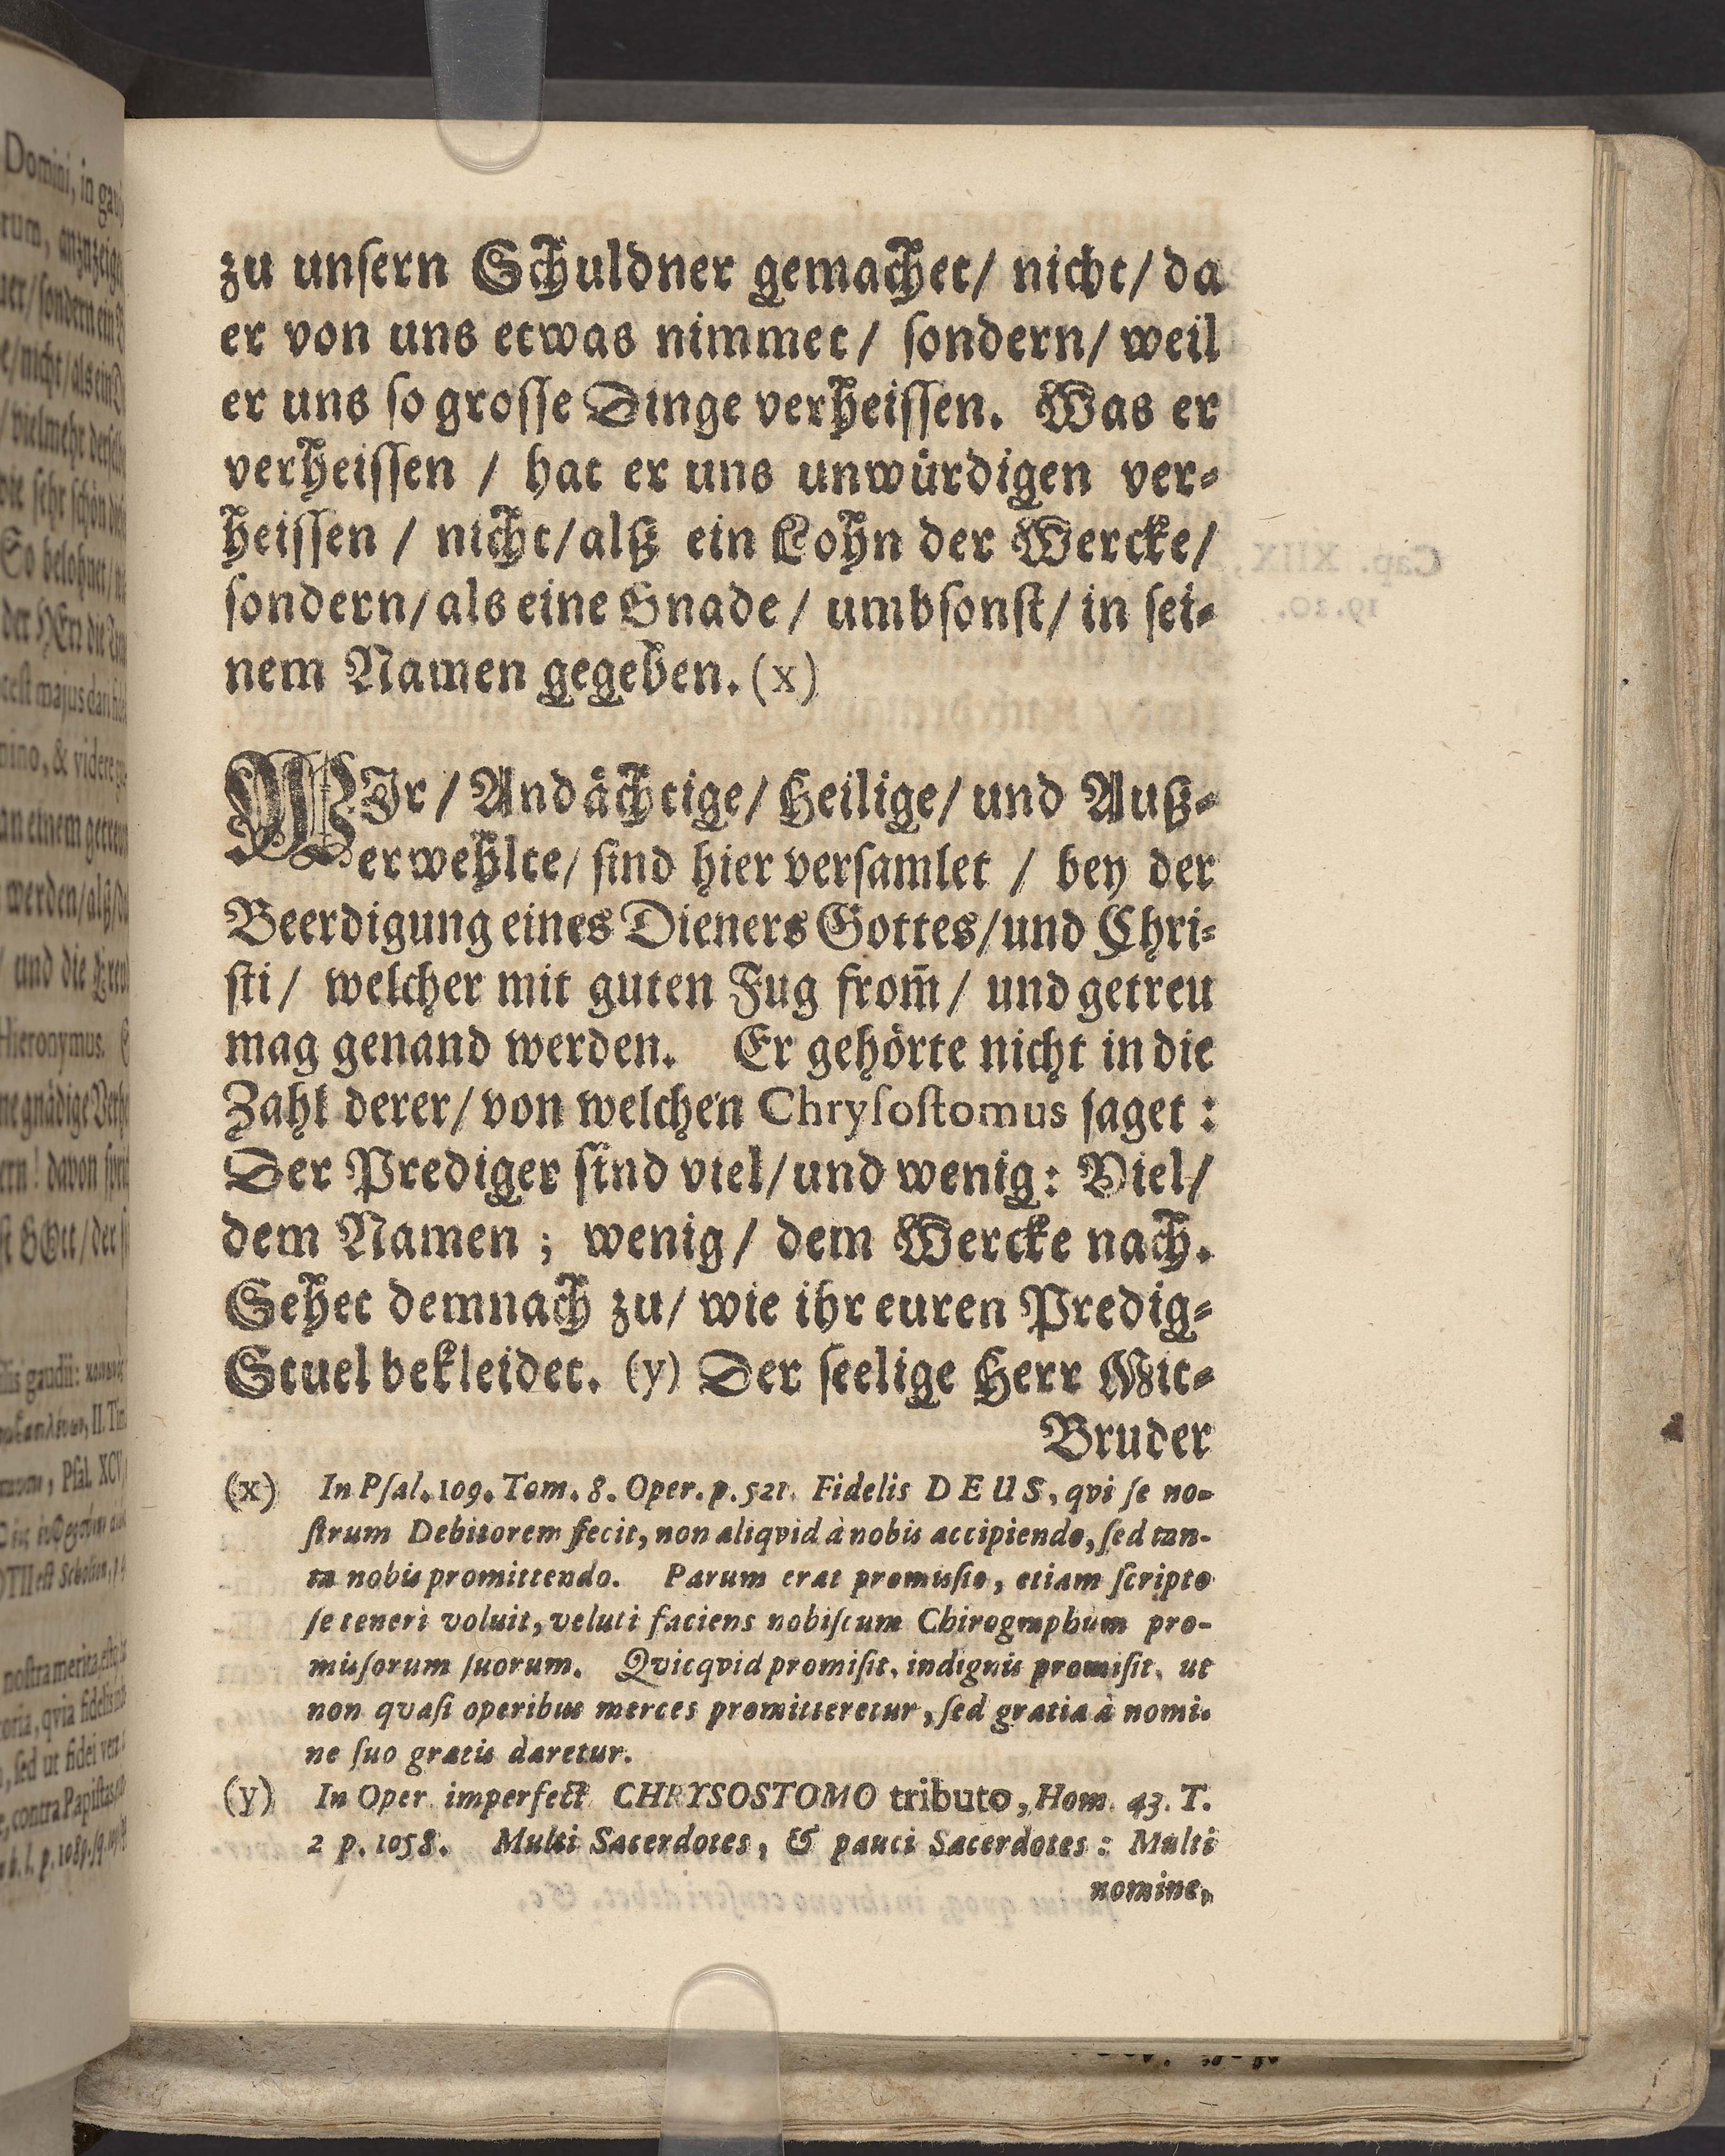 zu unſern Schuldner gemachet/ nicht/ da
er von uns etwas nimmet/ ſondern/ weil
er uns ſo groſſe Dinge verheiſſen. Was er
verheiſſen / hat er uns unwürdigen ver⸗
heiſſen / nicht/alß ein Lohn der Wercke/
ſondern/als eine Gnade/ umbſonſt/ in ſei⸗
nem Namen gegeben. (x)
WIr / Andåchtige/ Heilige/ und Auß⸗
erwehlte/ ſind hier verſamlet / bey der
Beerdigung eines Dieners Gottes/und Chri⸗
ſti/ welcher mit guten Fug from̃/ und getreu
mag genand werden. Er gehörte nicht in die
Zahl derer/ von welchen Chryſoſtomus ſaget :
Der Prediger ſind viel/ und wenig: Viel/
dem Namen ; wenig/ dem Wercke nach.
Sehet demnach zu/ wie ihr euren Predig⸗
Stuel bekleidet. (y) Der ſeelige Herr Mit⸗
Bruder
(x) In Pſal. 109. Tom. 8. Oper. p. 521. Fidelis DEUS, qvi ſe no-
ſtrum Debitorem fecit, non aliqvid à nobis accipiendo, ſed tan-
ta nobis promittendo. Parum erat promiſſio, etiam ſcripto
ſe teneri voluit, veluti faciens nobiſcum Chirographum pro-
miſſorum ſuorum. Qvicqvid promiſit, indignis promiſit, ut
non qvaſi operibus merces promitteretur, ſed gratia à nomi-
ne ſuo gratis daretur.
(y) In Oper. imperfect. CHRYSOSTOMO tributo, Hom. 43. T.
2 p. 1058. Multi Sacerdotes, & pauci Sacerdotes : Multi
nomine,